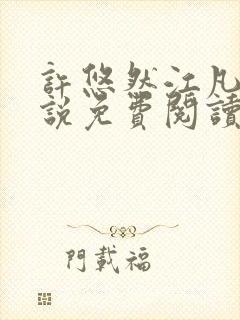 許悠然江凡
說免費閱讀
門載福